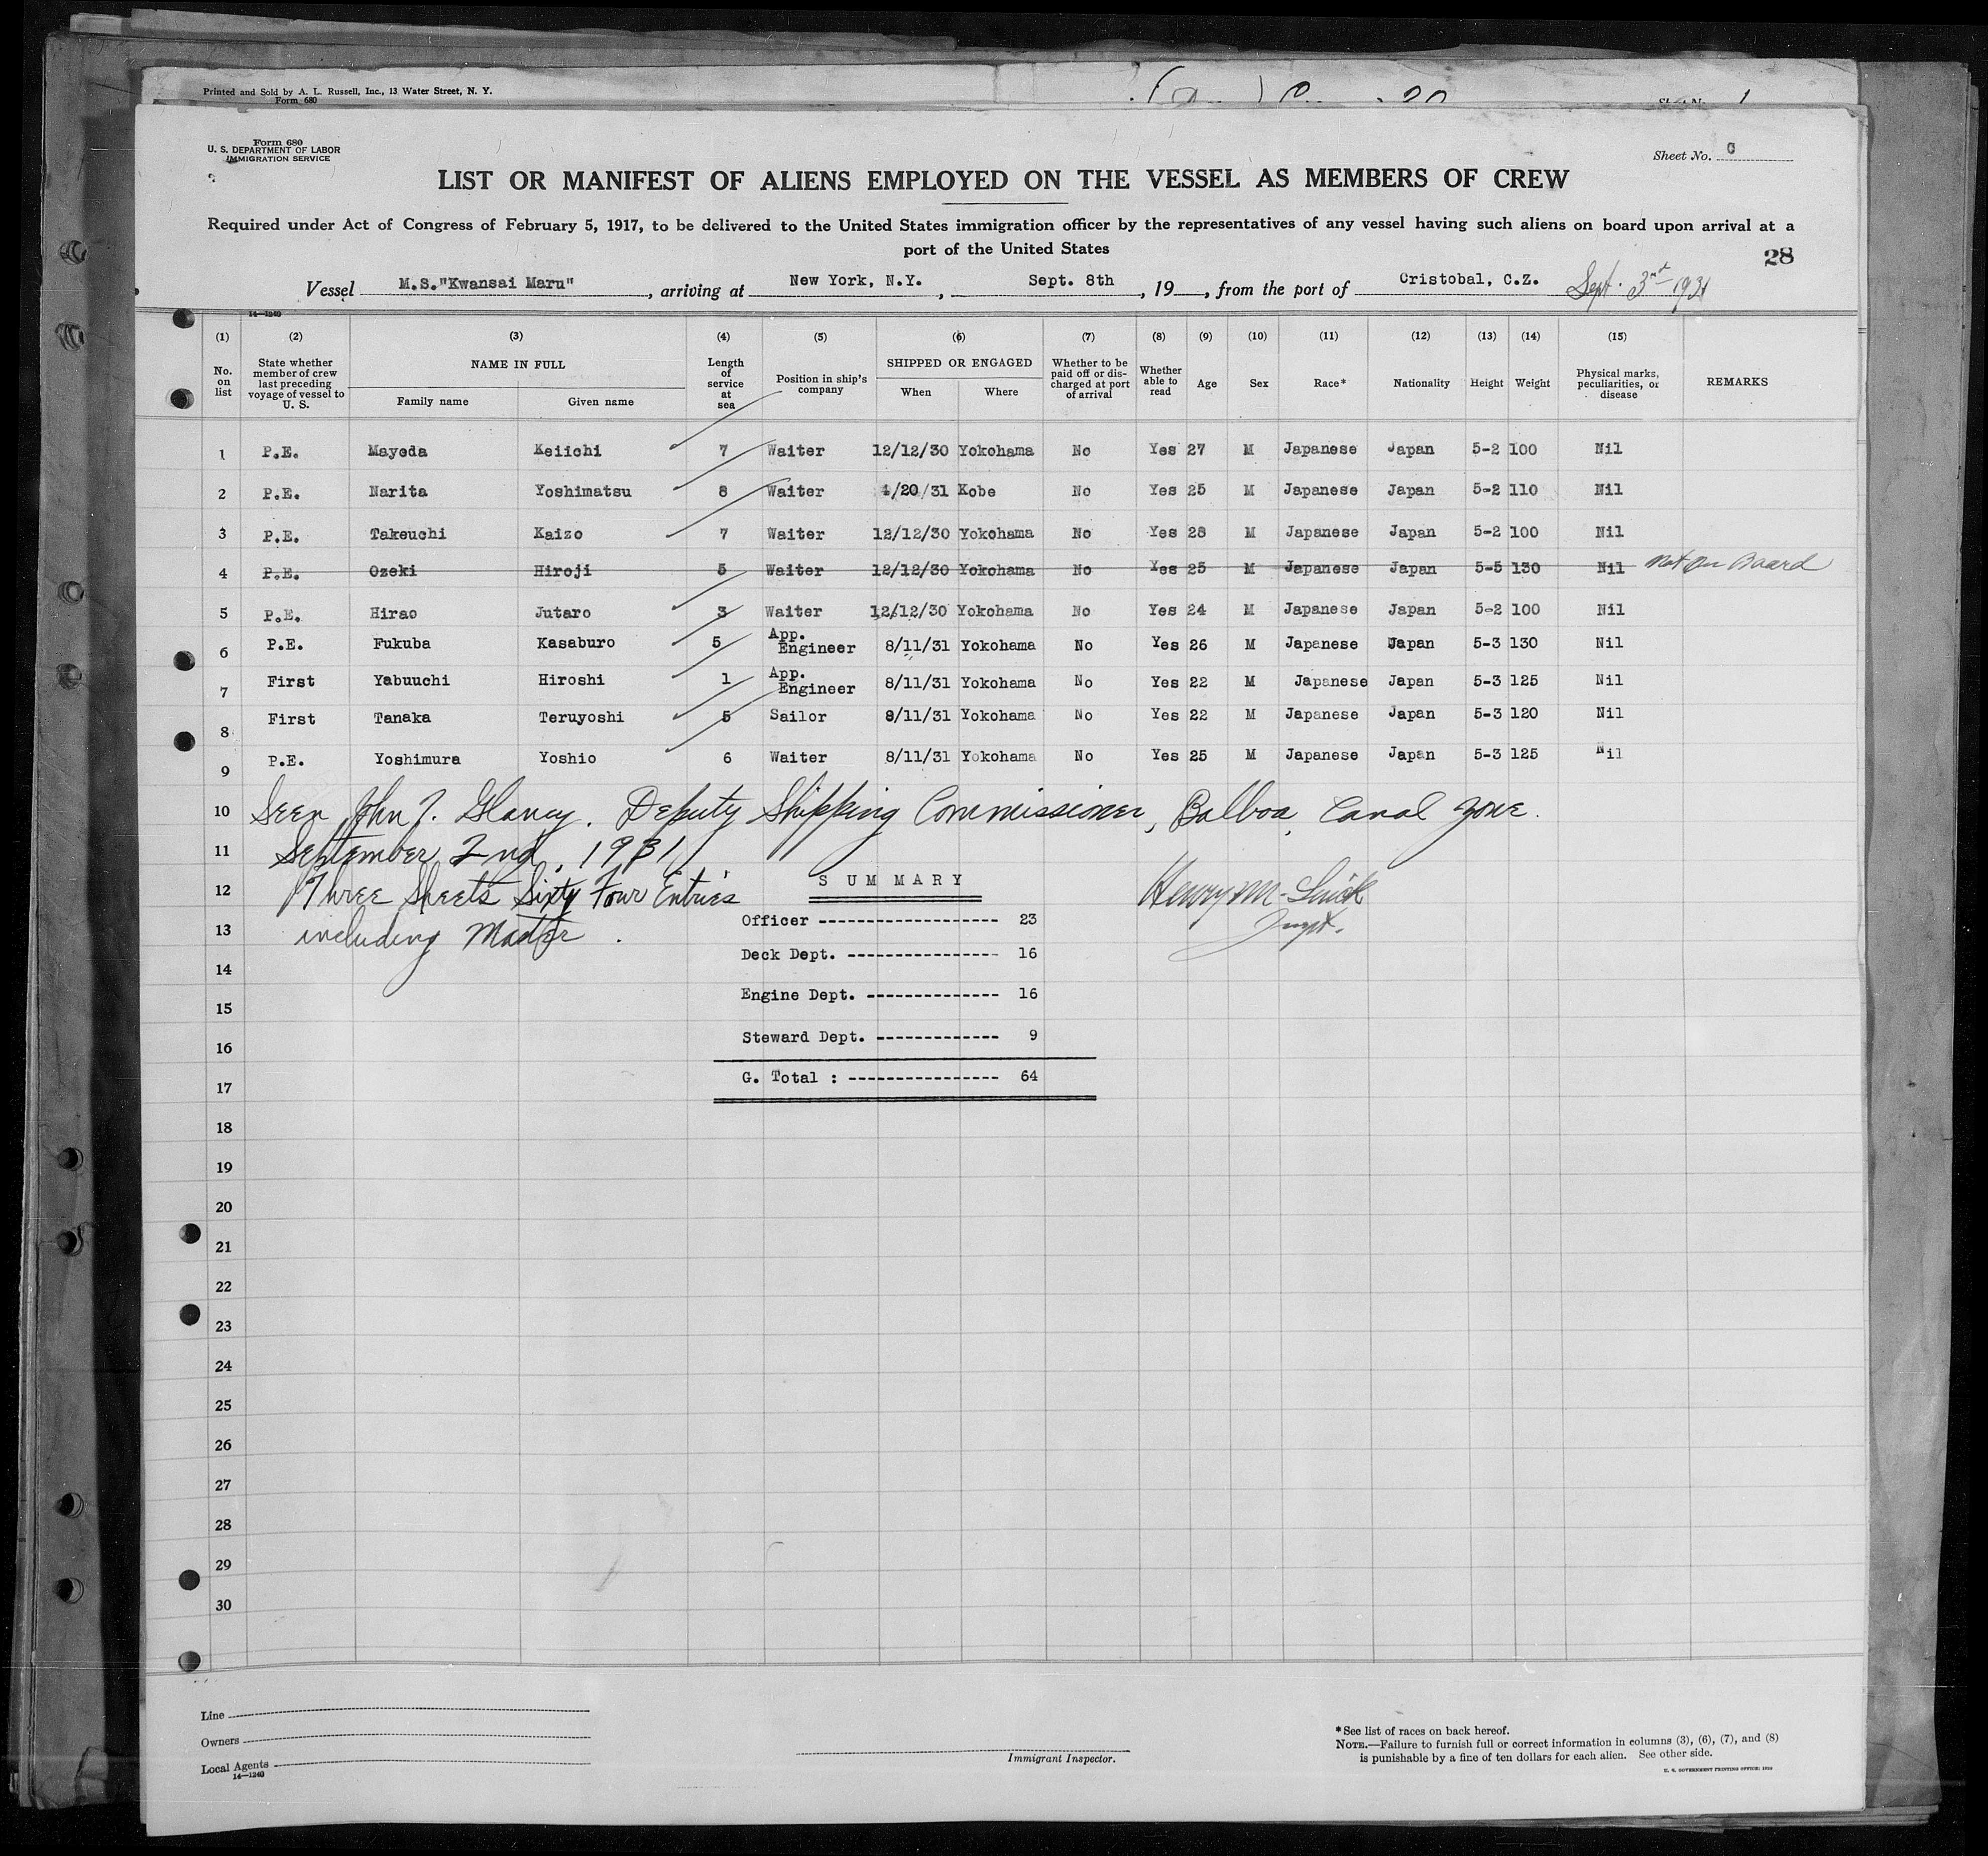 Printed and Sold by A. L. Russell, Inc., 13 Water Street, N. Y.
Form 680
Form 680
U. S. DEPARTMENT OF LABOR
IMMIGRATION SERVICE
Sheet No. C
LIST OR MANIFEST OF ALIENS EMPLOYED ON THE VESSEL AS MEMBERS OF CREW
Required under Act of Congress of February 5, 1917, to be delivered to the United States immigration officer by the representatives of any vessel having such aliens on board upon arrival at a
port of the United States
28
Vessel M.S."Kwansai Maru", arriving at New York, N.Y., Sept. 8th, 19__, from the port of Cristobal, C.Z. Sept. 3rd 1931
14—1240
(1) (2) (3) (4) (5) (6) (7) (8) (9) (10) (11) (12) (13) (14) (15)
No. on list State whether member of crew last preceding voyage of vessel to U. S. NAME IN FULL Length of service at sea Position in ship's company SHIPPED OR ENGAGED Whether to be paid off or discharged at port of arrival Whether able to read Age Sex Race* Nationality Height Weight Physical marks, peculiarities, or disease REMARKS
Family name Given name When Where
1 P.E. Mayeda Keiichi 7 Waiter 12/12/30 Yokohama No Yes 27 M Japanese Japan 5-2 100 Nil
2 P.E. Narita Yoshimatsu 8 Waiter 1/20/31 Kobe No Yes 25 M Japanese Japan 5-2 110 Nil
3 P.E. Takeuchi Kaizo 7 Waiter 12/12/30 Yokohama No Yes 28 M Japanese Japan 5-2 100 Nil
4 P.E. Ozeki Hiroji 5 Waiter 12/12/30 Yokohama No Yes 25 M Japanese Japan 5-5 130 Nil Not on Board
5 P.E. Hirao Jutaro 3 Waiter 12/12/30 Yokohama No Yes 24 M Japanese Japan 5-2 100 Nil
6 P.E. Fukuba Kasaburo 5 App. Engineer 8/11/31 Yokohama No Yes 26 M Japanese Japan 5-3 130 Nil
7 First Yabuuchi Hiroshi 1 App. Engineer 8/11/31 Yokohama No Yes 22 M Japanese Japan 5-3 125 Nil
8 First Tanaka Teruyoshi 5 Sailor 8/11/31 Yokohama No Yes 22 M Japanese Japan 5-3 120 Nil
9 P.E. Yoshimura Yoshio 6 Waiter 8/11/31 Yokohama No Yes 25 M Japanese Japan 5-3 125 Nil
10 Seen John J. Glancy. Deputy Shipping Commissioner, Balboa, Canal Zone.
11 September 2nd, 1931
12 Three Sheets Sixty Four Entries SUMMARY Henry M.
13 including Master. Officer ------------------ 23 Inspt.
14 Deck Dept. --------------- 16
15 Engine Dept. ------------- 16
16 Steward Dept. ------------ 9
17 G. Total : --------------- 64
18
19
20
21
22
23
24
25
26
27
28
29
30
Line
Owners
Local Agents
14—1240
Immigrant Inspector.
*See list of races on back hereof.
NOTE.—Failure to furnish full or correct information in columns (3), (6), (7), and (8)
is punishable by a fine of ten dollars for each alien. See other side.
U. S. GOVERNMENT PRINTING OFFICE: